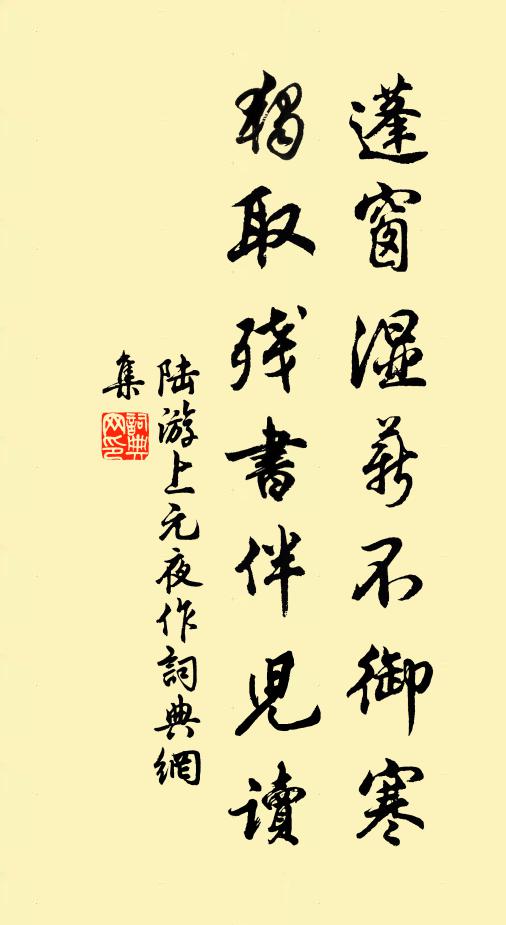 蓬窗湿薪不御寒
独取残书伴儿读
陆游上元夜作詞典網
集
詞典網印